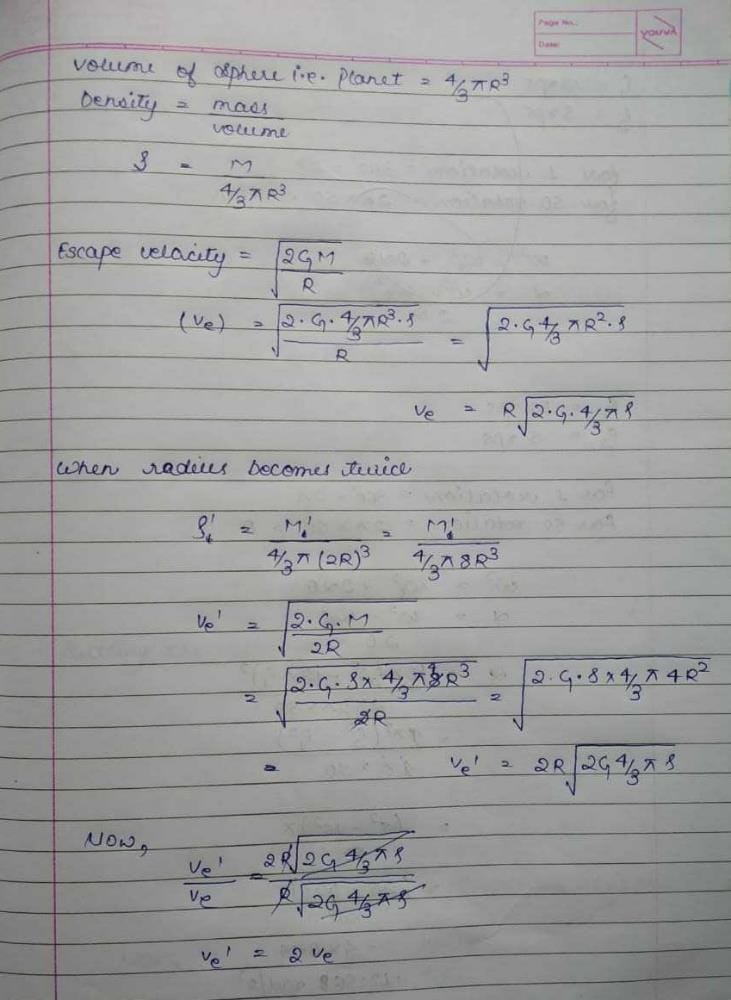 Page No.:
Date:
YOUVA
volume of sphere i.e. planet = 4/3 πR³
Density = mass / volume
ρ = M / 4/3 πR³
Escape velocity = √(2GM / R)
(ve) = √(2·G·4/3 πR³·ρ / R) = √(2·G 4/3 πR²·ρ)
ve = R√(2·G·4/3 πρ)
when radius becomes twice
ρ' = M' / 4/3 π(2R)³ = M' / 4/3 π8R³
ve' = √(2·G·M / 2R)
= √(2·G·ρ × 4/3 π8R³ / 2R) = √(2·G·ρ × 4/3 π 4R²)
= ve' = 2R√(2G 4/3 πρ)
Now,
ve' / ve = 2R√(2G 4/3 πρ) / R√(2G 4/3 πρ)
ve' = 2ve